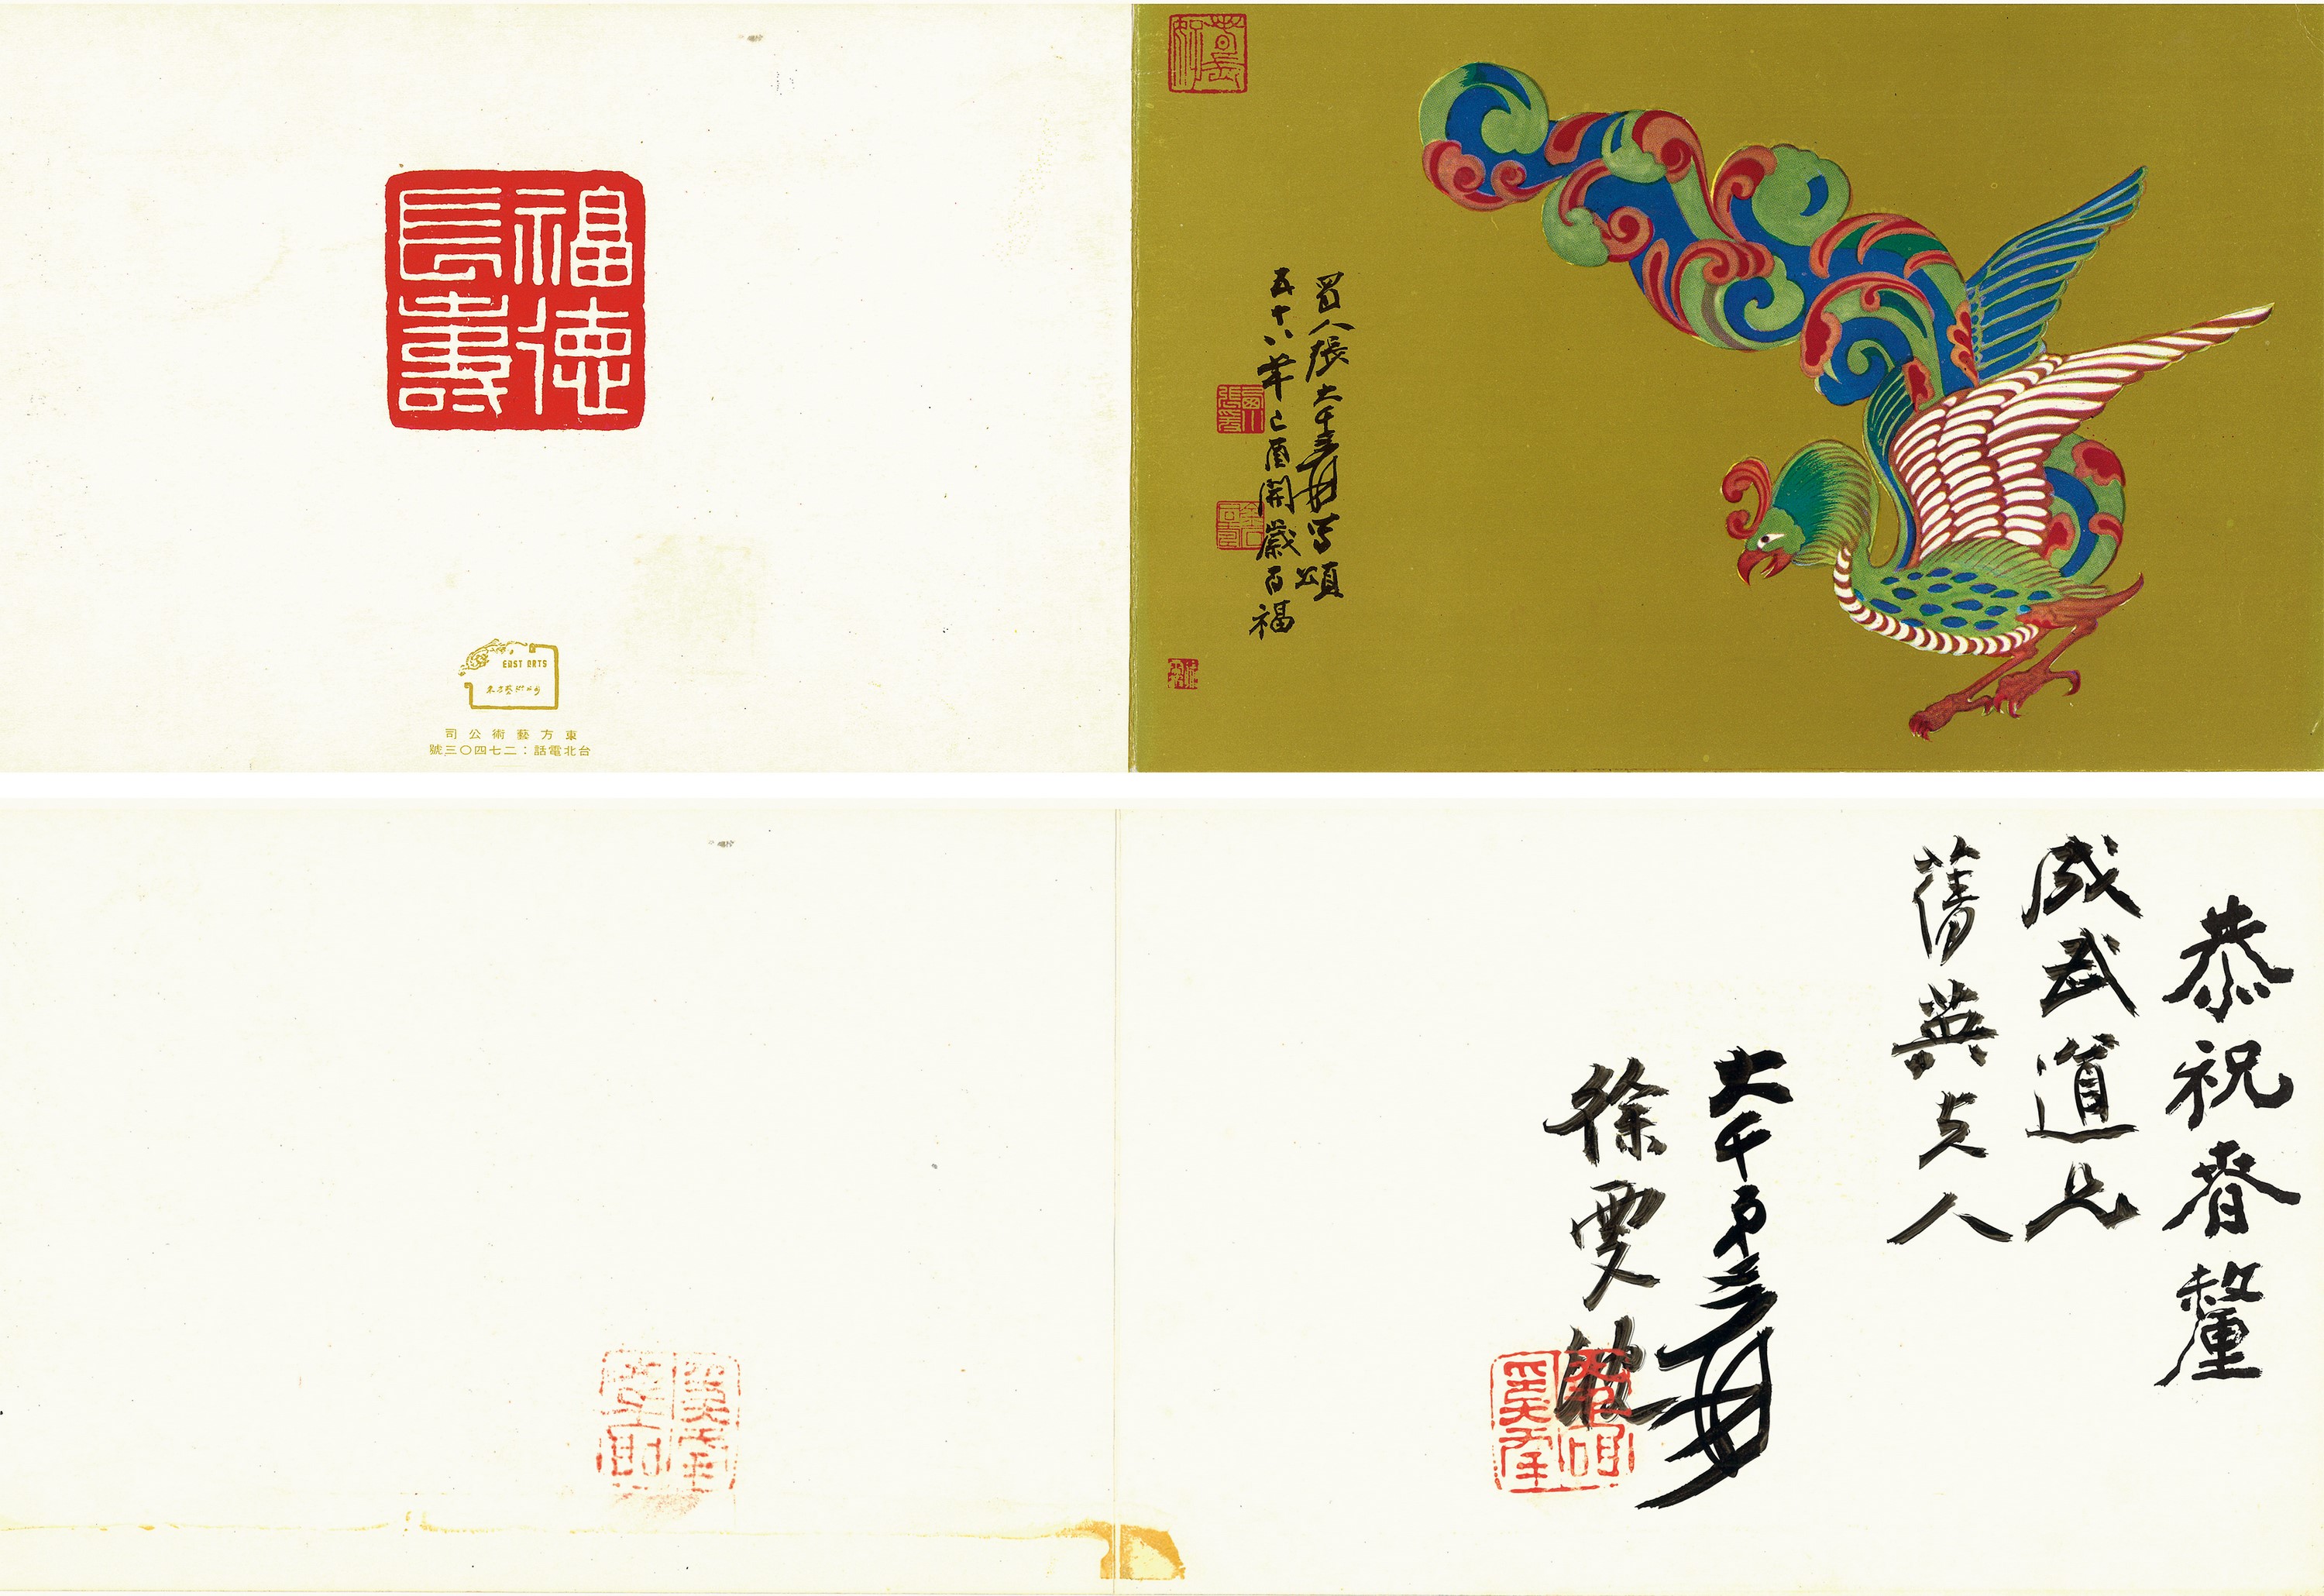 福德
長壽
EAST ARTS
東方藝術公司
東方藝術公司
台北電話：二七四〇三號
蜀人張大千爰寫頌
五十八年己酉開歲百福
恭祝春釐
成武道兄
蒨英夫人
大千弟爰
徐雯波